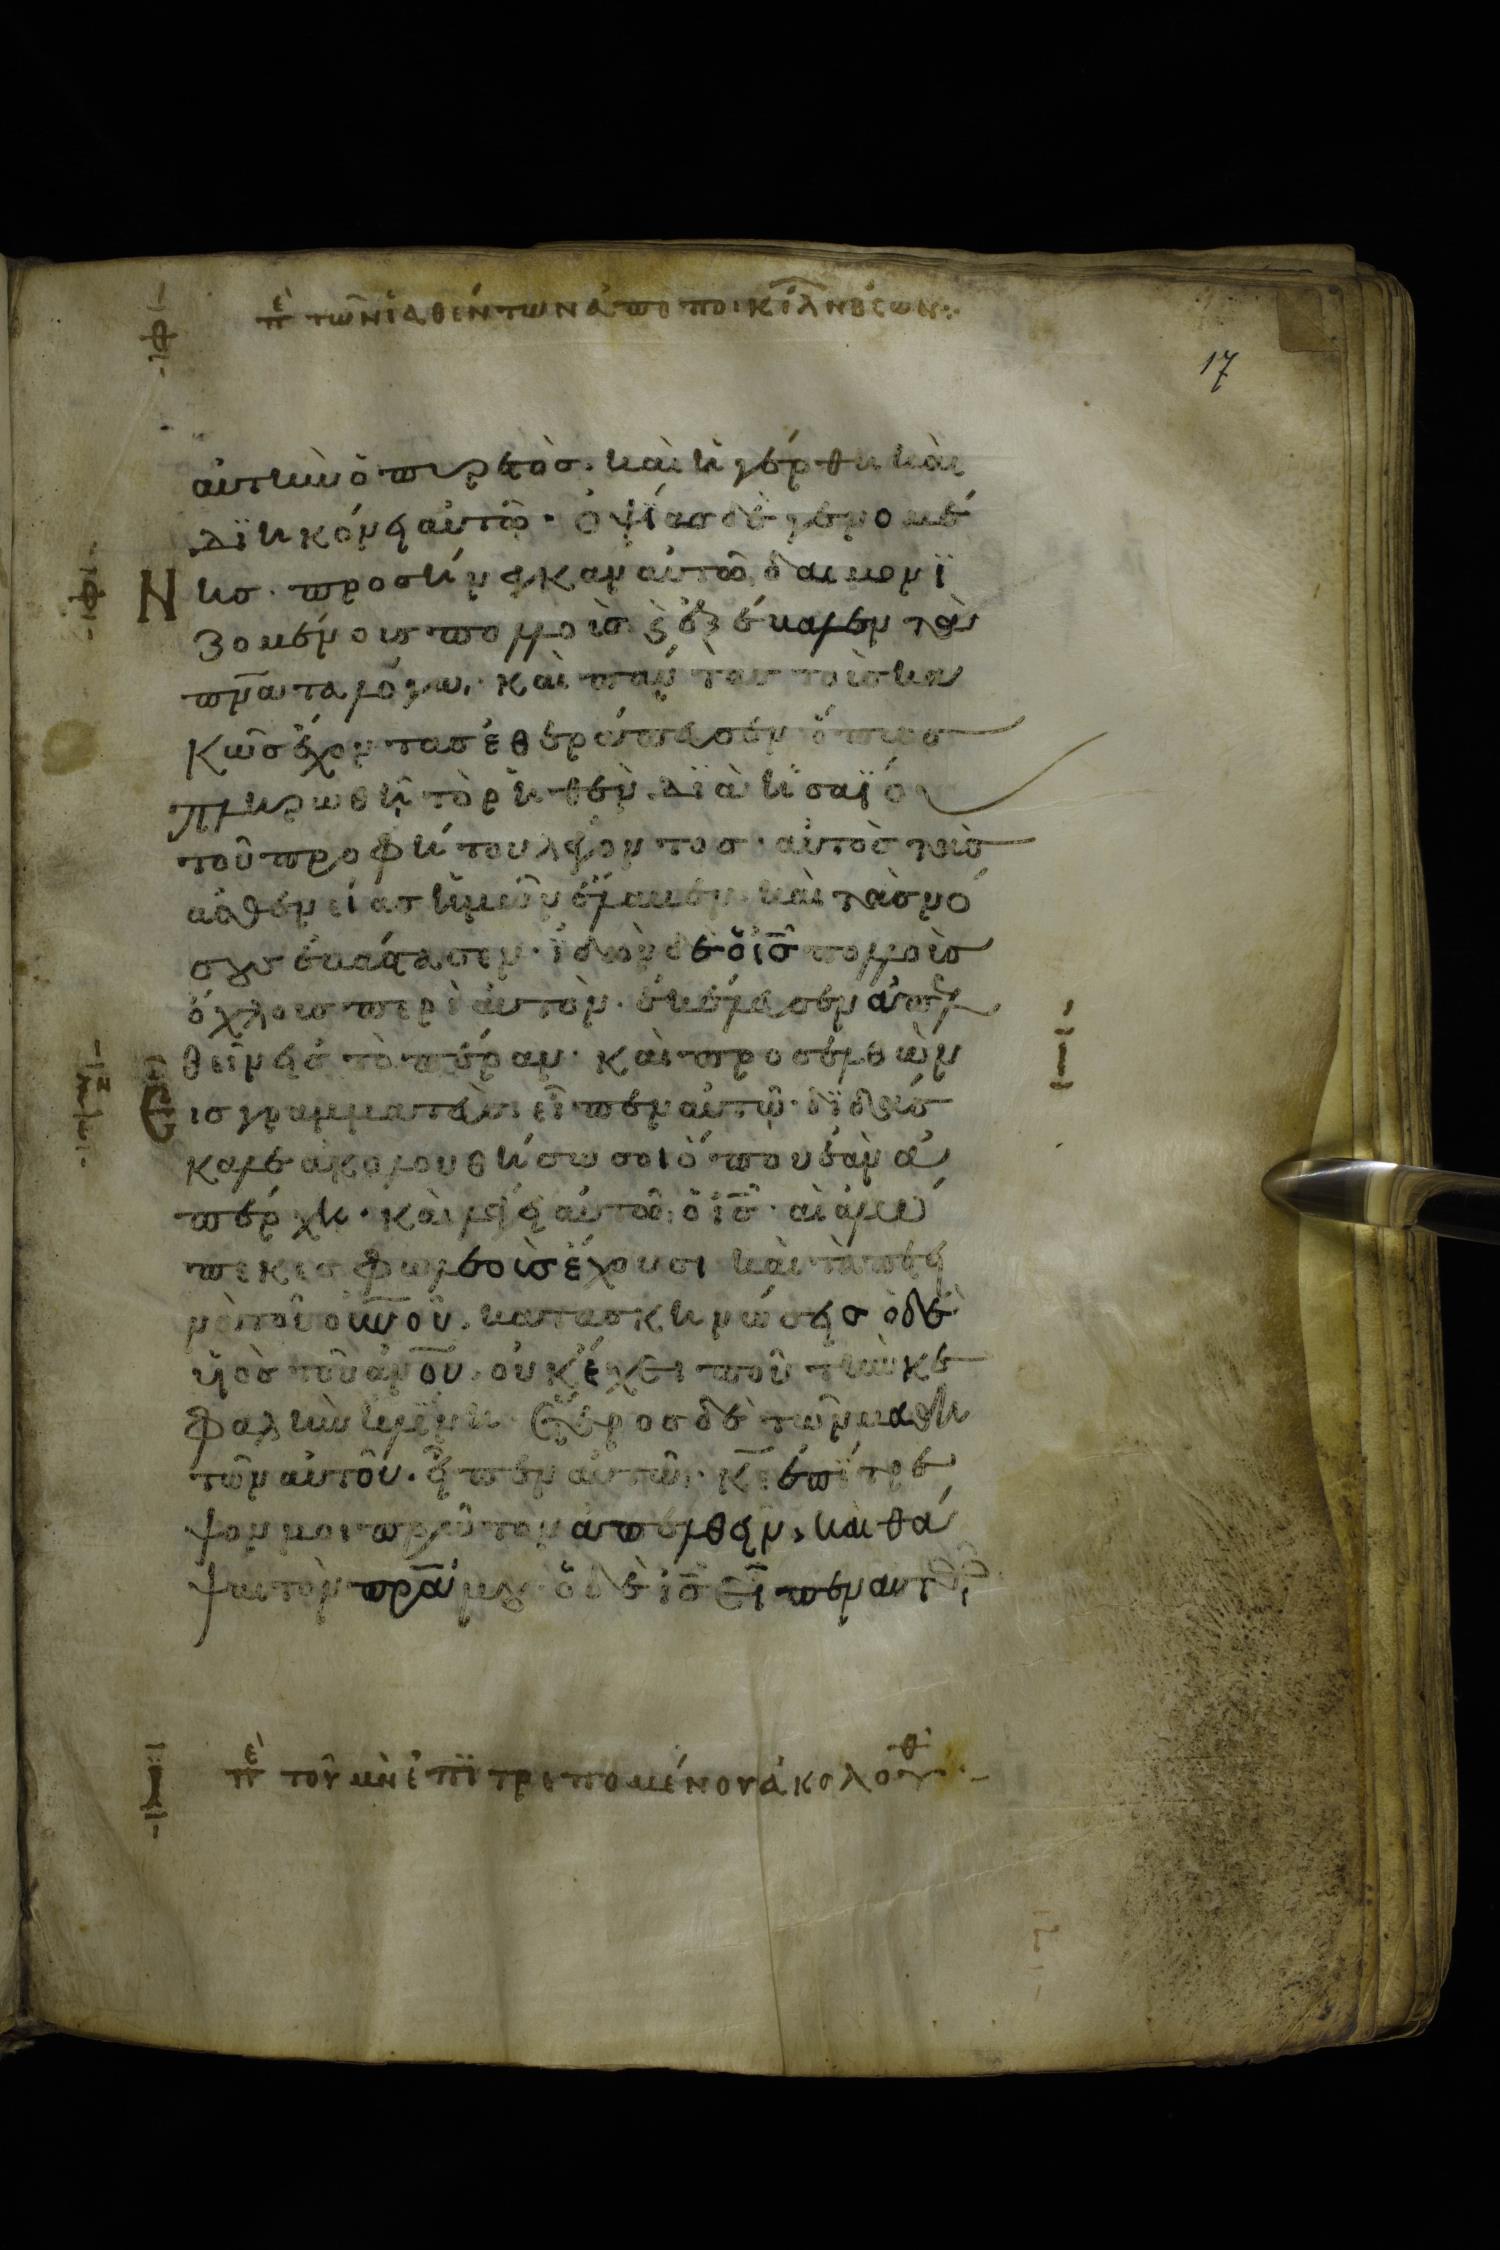 πε τῶν ἰαθέντων ἀπὸ ποικίλ νόσων:
17
αὐτὴν ὁ πυρετὸσ· καὶ ἠγέρθη καὶ
διηκόνει αὐτῶ· ὀψίασ δὲ γενομέ
νησ· προσήνεγκαν αὐτῶ δαιμονϊ
ζομένουσ πολλοὺσ· καὶ ἐξέβαλεν τὰ
πν̅ατα λόγω· καὶ πάντασ τοὺσ κα
κῶσ ἔχοντασ ἐθεράπευσεν ὅπωσ
πληρωθῆ τὸ ῥηθὲν διὰ ἡσαϊου
τοῦ προφήτου λέγοντοσ· αὐτὸσ τὰσ
ἀσθενείασ ἡμῶν ἔλαβεν καὶ τὰσ νό
σουσ ἐβάστασεν· ἰδὼν δὲ ὁ ι̅σ̅ πολλοὺσ
ὄχλουσ περὶ αὐτὸν· ἐκέλευσεν ἀπελ
θεῖν εἰσ τὸ πέραν· καὶ προσελθὼν
Εἷσ γραμματεὺσ εἶπεν αὐτῶ· διδάσ
καλε ἀκολουθήσω σοι ὅπου ἐὰν ἀ
πέρχη· καὶ λέγει αὐτῶ ὁ ι̅σ̅· αἱ ἀλώ
πεκεσ φωλεοὺσ ἔχουσι καὶ τὰ πετει
νὰ τοῦ ο̅υ̅νοῦ κατασκηνώσεισ ὁ δὲ
υἱὸσ τοῦ α̅ν̅ου οὐκ ἔχει ποῦ τὴν κε
φαλὴν κλίνη· ἕτεροσ δὲ τῶν μαθη
τῶν αὐτοῦ· εἶπεν αὐτῶ· κ̅ε̅ ἐπίτρε
ψον μοι πρῶτον ἀπελθεῖν, καὶ θά
ψαι τὸν π̅ρ̅α μου· ὁ δὲ ι̅σ̅ εἶπεν αὐτῶ
πε τοῦ μὴ ἐπιτρεπομένου ἀκολουθ